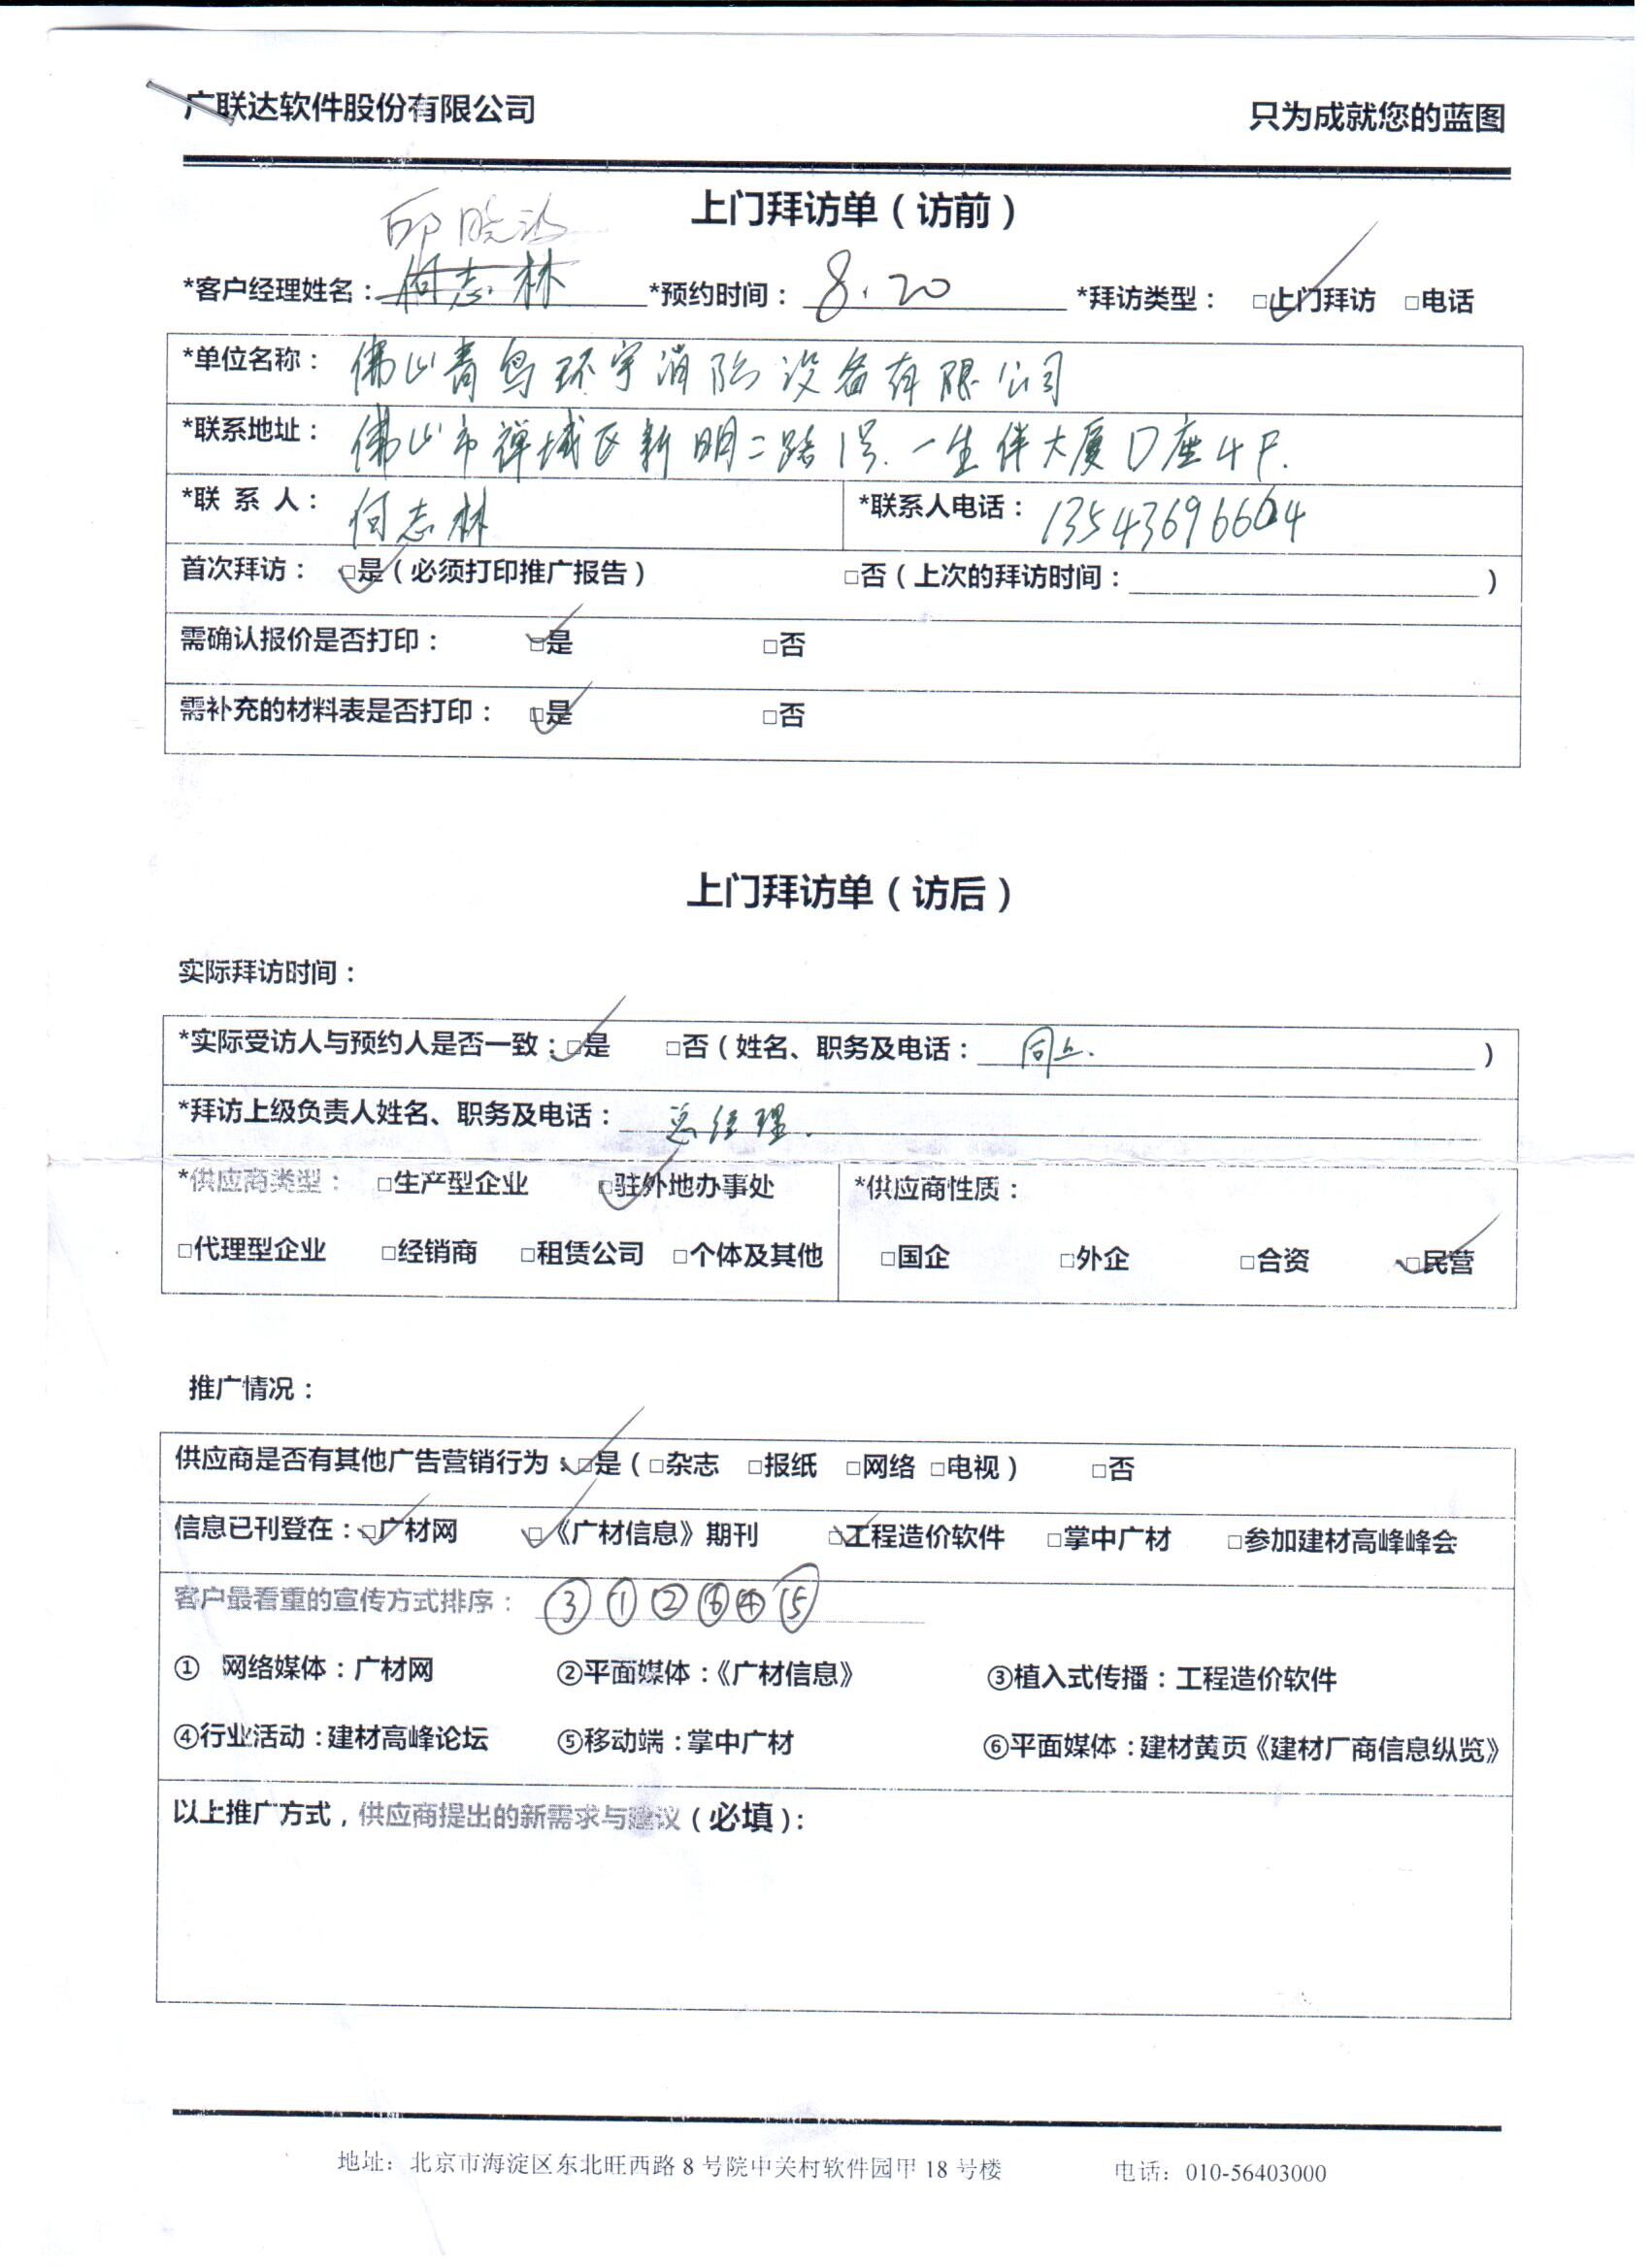 广联达软件股份有限公司 只为成就您的蓝图
上门拜访单（访前）
*客户经理姓名： 何志林 *预约时间： 8.20 *拜访类型： □上门拜访 □电话
*单位名称： 佛山青鸟环宇消防设备有限公司
*联系地址： 佛山市禅城区新明二路1号.一生伴大厦D座4F.
*联 系 人： 何志林 *联系人电话： 13543696664
首次拜访： □是（必须打印推广报告） □否（上次的拜访时间： ）
需确认报价是否打印： □是 □否
需补充的材料表是否打印： □是 □否
上门拜访单（访后）
实际拜访时间：
*实际受访人与预约人是否一致：□是 □否（姓名、职务及电话： 同上. ）
*拜访上级负责人姓名、职务及电话： 总经理.
*供应商类型： □生产型企业 □驻外地办事处 *供应商性质：
□代理型企业 □经销商 □租赁公司 □个体及其他 □国企 □外企 □合资 □民营
推广情况：
供应商是否有其他广告营销行为：□是（□杂志 □报纸 □网络 □电视） □否
信息已刊登在：□广材网 □《广材信息》期刊 □工程造价软件 □掌中广材 □参加建材高峰峰会
客户最看重的宣传方式排序： ③①②⑥④⑤
① 网络媒体：广材网 ②平面媒体：《广材信息》 ③植入式传播：工程造价软件
④行业活动：建材高峰论坛 ⑤移动端：掌中广材 ⑥平面媒体：建材黄页《建材厂商信息纵览》
以上推广方式，供应商提出的新需求与建议（必填）：
地址：北京市海淀区东北旺西路 8 号院中关村软件园甲 18 号楼 电话：010-56403000